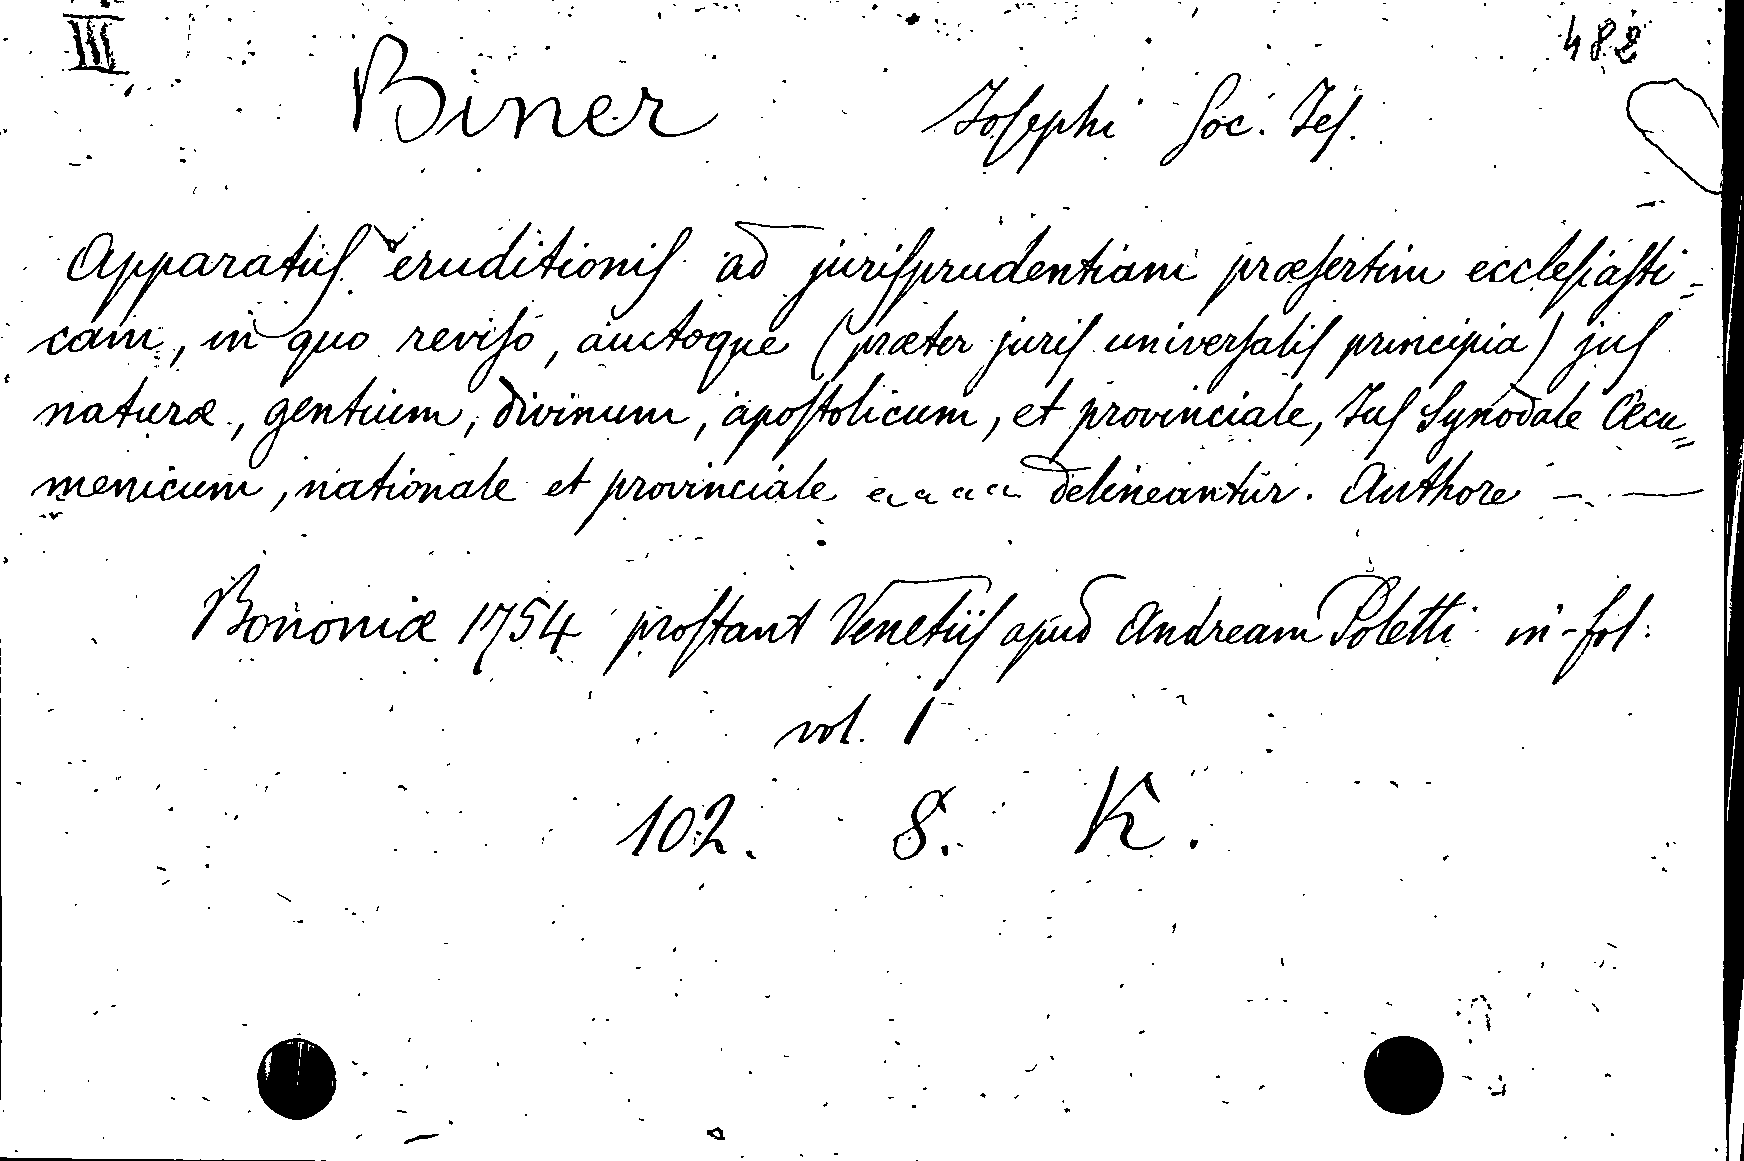 III 482
Biner Josephi Soc. Jes.
Apparatus eruditionis ad jurisprudentiam præsertim ecclesiasti=
cam, in quo reviso, auctoque (præter juris universalis principia) jus
naturæ, gentium, divinum, apostolicum, et provinciale, Jus Synodale Œcu=
menicum, nationale et provinciale delineantur. Authore — —
Bononiæ 1754 prostant Venetiis apud Andream Poletti in-fol:
vol. 1
102. 8. K.